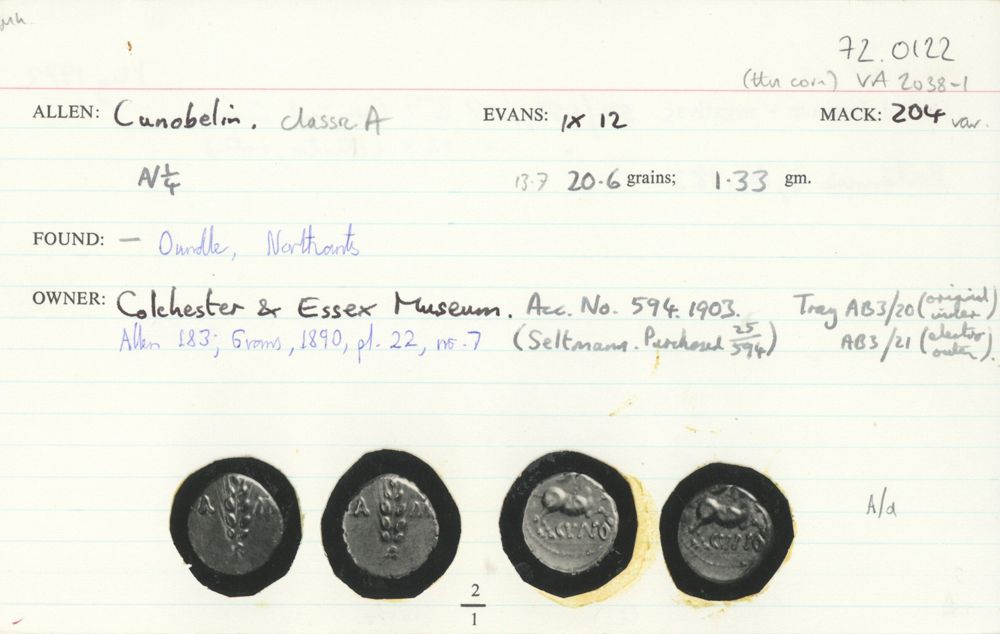 72.0122
VA 2038-1
ALLEN: Cunobelin. classic A EVANS: IX 12 MACK: 204 var.
N 1/4 13.7 20.6 grains; 1.33 gm.
FOUND: — Oundle, Northants
OWNER: Colchester & Essex Museum. Acc. No. 594.1903. Tray AB3/20 (original inner)
Allen 183; Evans, 1890, pl. 22, no. 7 (Seltmann. Purchased 25/594) AB3/21 (electro outer).
A M A M
A/d
2/1